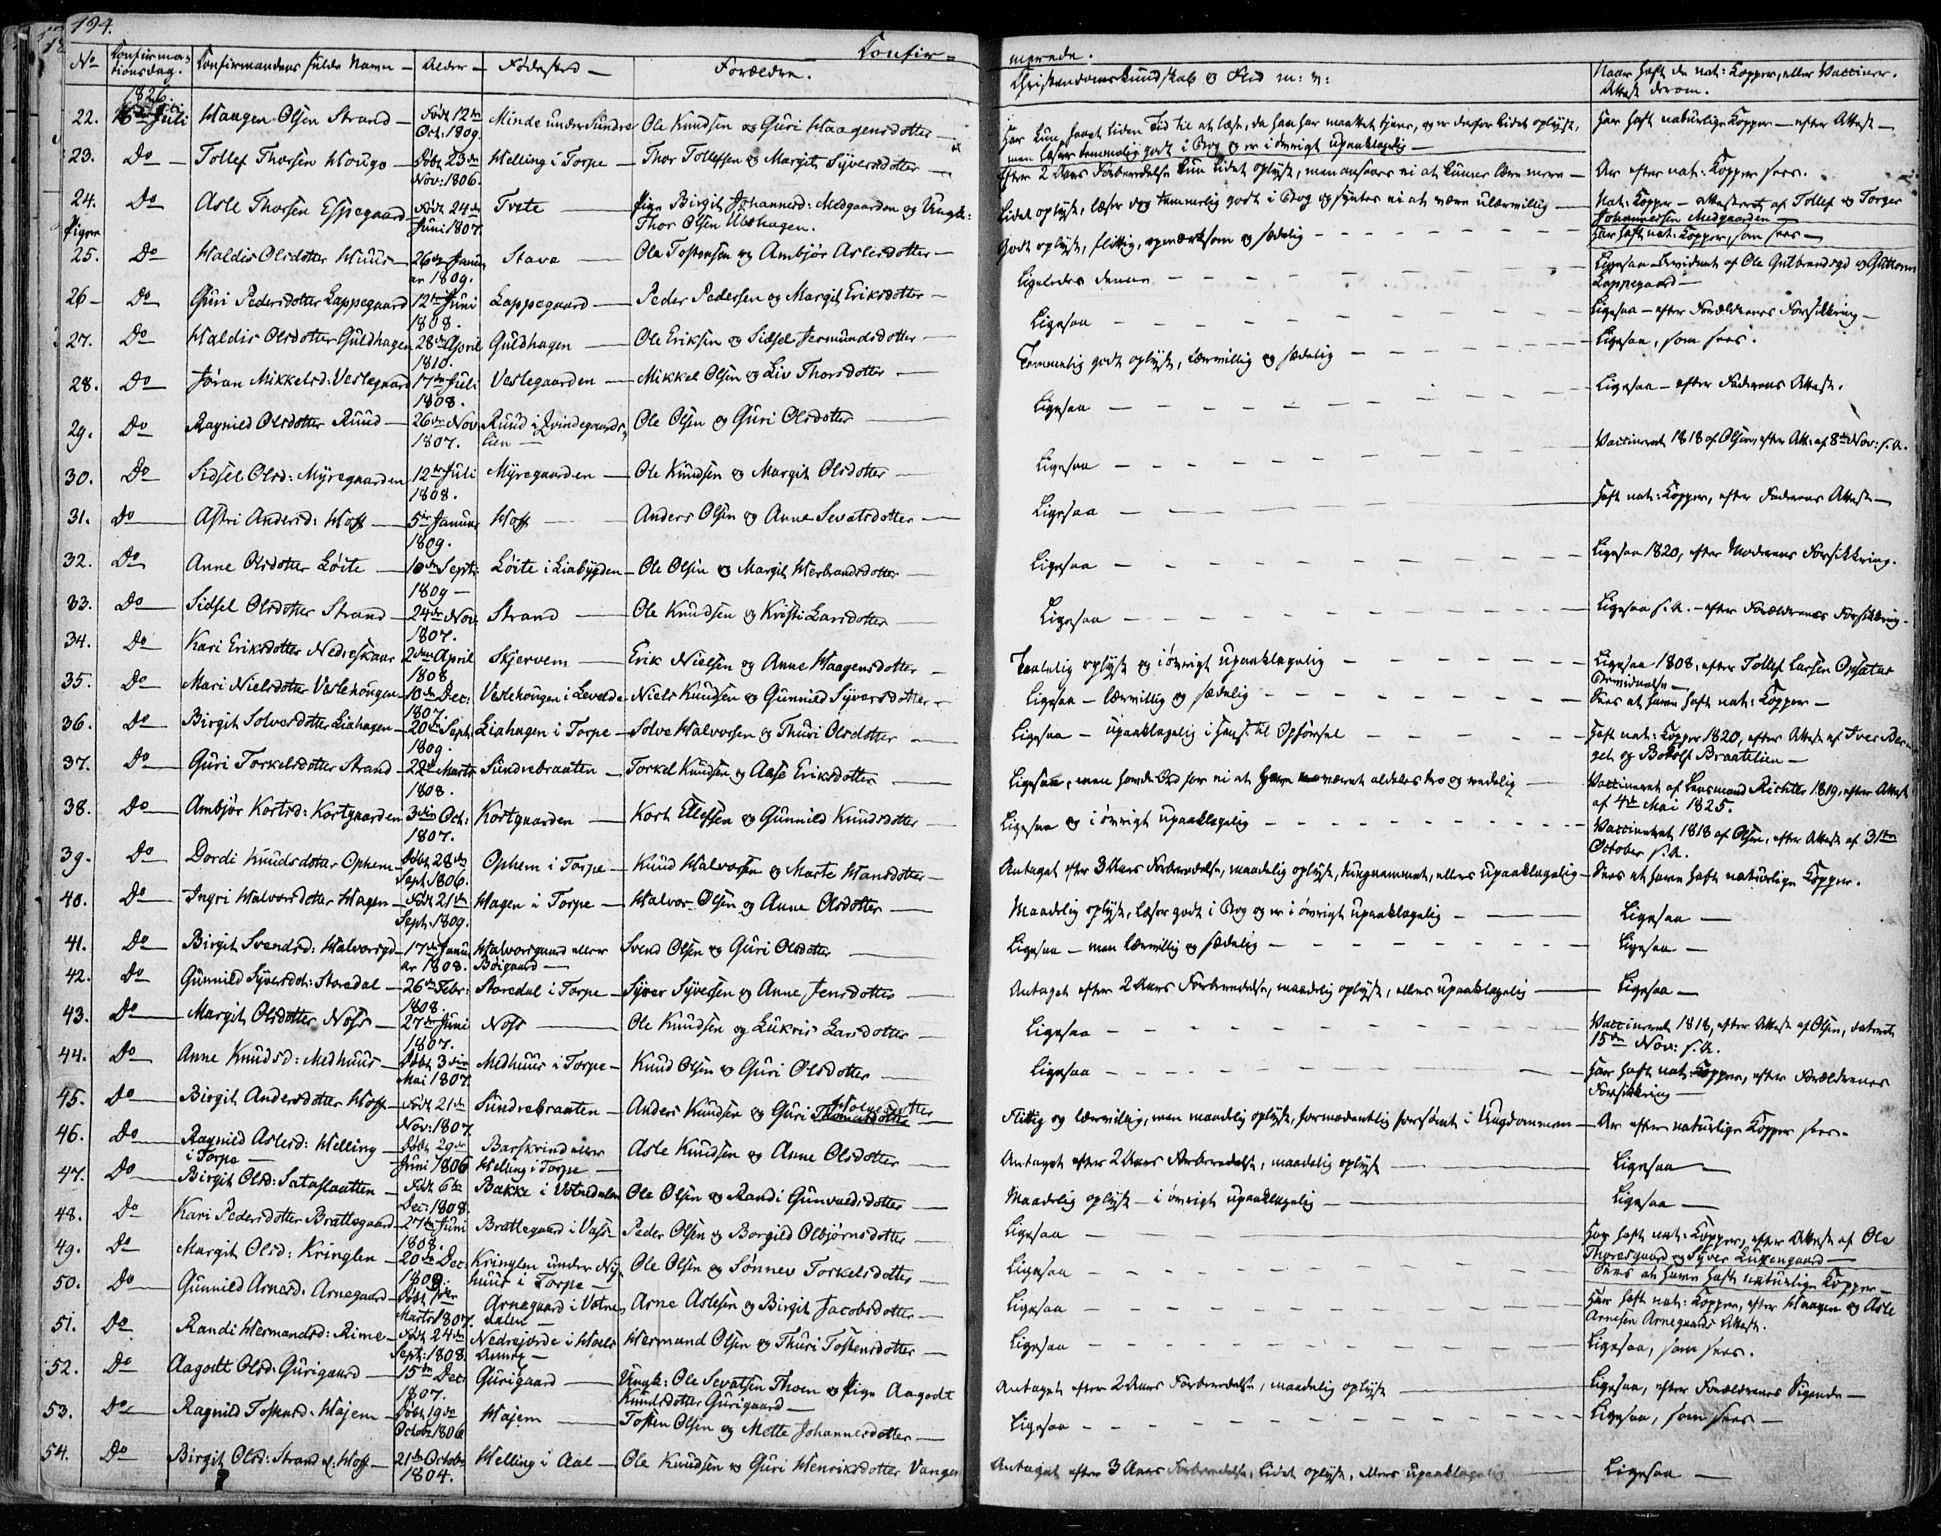 194.
Confir-
merede.
No
Confirma-
tionsdag.
Confirmandens fulde Navn
Alder
Fødested
Forældre.
Christendoms Kundskab og Flid m: v:
Naar haft de nat: Kopper, eller Vaccineret
Attest derom.
1826.
22. 16de Juli Haagen Olsen Strand — Født 12te Oct: 1809. Minde under Sundre Ole Knudsen og Guri Haagensdotter — Har kun havt liden Tid til at læse, da han har maattet tjene, og er derfor lidet oplyst, men læser temmelig godt i Bog og er i øvrigt upaaklagelig — Har haft naturlige Kopper — efter Attest —
23. Do — Tollef Thorsen Hougo — Døbt 23de Nov: 1806. Helling i Torpe — Thor Tollefsen og Margit Syversdotter — Efter 2 Aars Forberedelse kun lidet oplyst, men ansees ei at kunne lære mere — Ar efter nat: Kopper sees.
24. Do Asle Thorsen Espegaard — Født 24de Juni 1807. Tvete — Pige Birgit Johannesd: Medgaarden og Ungk: Thor Olsen Ulshagen. Lidet oplyst, læser dog temmelig godt i Bog og synes ei at være ulærvillig — Nat: Kopper — attesteret af Tollef og Torger Johannessen Medgaarden —
Piger
25. Do Haldis Olsdotter Huus — 26de Januar 1809. Stave — Ole Tostensen og Ambjør Aslesdotter — Godt oplyst, flittig, opmærksom og sædelig — Har haft nat: Kopper, som sees —
26 — Do Guri Pedersdotter Lappegaard 12te Juni 1808. Lappegaard — Peder Pedersen og Margit Eriksdotter — Ligeledes denne — Ligesaa — bevidnet af Ole Gulbrandsgd og Guttorm Lappegaard —
27. Do Haldis Olsdotter Guldhagen 28de April 1810. Guldhagen — Ole Eriksen og Sidsel Jermundsdotter — Ligesaa — Ligesaa — efter Forældrenes Forsikkring —
28. Do Jøran Mikkelsd: Veslegaard 17de Juli 1808. Veslegaarden — Mikkel Olsen og Liv Thorsdotter — Temmelig godt oplyst, lærvillig og sædelig — Ligesaa, som sees.
29. Do Ragnild Olsdotter Ruud — 26de Nov 1807. Ruud i Qvindegaardslien — Ole Olsen og Guri Olsdotter — Ligesaa — Ligesaa — efter Faderens Attest.
30. Do Sidsel Olsd: Myregaarden 12te Juli 1808. Myregaarden — Ole Knudsen og Margit Olsdotter — Ligesaa — Vaccineret 1818 af Olsen, efter Att: af 8de Nov: s. A.
31. Do Astri Andersd: Hoff — 5te Januar 1809. Hoff — Anders Olsen og Anne Sevatsdotter — Ligesaa — Haft nat: Kopper, efter Faderens Attest —
32. Do Anne Olsdotter Löite — 10de Sept: 1809 — Löite i Liabygden — Ole Olsen og Margit Herbrandsdotter — Ligesaa — Ligesaa 1820, efter Moderens Forsikkring.
33. Do Sidsel Olsdotter Strand — 24de Nov 1807. Strand — Ole Knudsen og Kristi Larsdotter — Ligesaa — Ligesaa s. A. — efter Forældrenes Forsikkring.
34. Do Kari Eriksdotter Nedreskaar 2den April 1808 Skjervem — Erik Nielsen og Anne Haagensdotter — Taalelig oplyst og i øvrigt upaaklagelig — Ligesaa 1808, efter Tollef Larsen Opsatas Bevidnelse —
35. Do Mari Nielsdotter Veslehougen 10de Dec: 1807. Veslehougen i Levelde Niels Knudsen og Gunnild Syversdotter — Ligesaa — lærvillig og sædelig — Sees at have haft nat: Kopper —
36. Do Birgit Solvesdotter Liahagen 20de Sept: 1809. Liahagen i Torpe — Solve Halvorsen og Thuri Olsdotter — Ligesaa — upaaklagelig i Hens. til Opførsel — Haft nat: Kopper 1820, efter Attest af Iver Berget og Botolf Braatelien —
37. Do Guri Torkelsdotter Strand — 22de Marts 1808. Sundrebraaten — Torkel Knudsen og Aase Eriksdotter — Ligesaa, men havde Ord for ei at have været aldeles tro og redelig — Vaccineret af Lensmand Richter 1819, efter Attest af 4de Mai 1825.
38. Do Ambjør Kortsd: Kortgaarden 3die Oct: 1807. Kortgaarden — Kort Ellefsen og Gunnild Knudsdotter — Ligesaa og i øvrigt upaaklagelig — Vaccineret 1818 af Olsen, efter Attest af 31te October s. A.
39. Do Dordi Knudsdotter Ophem — Døbt 28de Sept: 1806. Ophem i Torpe — Knud Halvorsen og Marte Hansdotter — Antaget efter 3 Aars Forberedelse, maadelig oplyst, tungnæmmet, ellers upaaklagelig — Sees at have haft naturlige Kopper.
40. Do Ingri Halvorsdotter Hagen — Født 21de Sept: 1809. Hagen i Torpe — Halvor Olsen og Anne Olsdotter — Maadelig oplyst, læser godt i Bog og er i øvrigt upaaklagelig — Ligesaa —
41. Do Birgit Svendsd: Halvorsgd — 17de Januar 1808. Halvorsgaard eller Böigaard — Svend Olsen og Guri Olsdotter — Ligesaa — men lærvillig og sædelig — Ligesaa —
42. Do Gunnild Syversdot: Storedal — 26de Febr: 1808. Storedal i Torpe — Syver Syversen og Anne Jensdotter — Antaget efter 2 Aars Forberedelse, maadelig oplyst, ellers upaaklagelig — Ligesaa —
43. Do Margit Olsdotter Noss — 27de Juni 1807. Noss — Ole Knudsen og Lukris Larsdotter — Ligesaa — Vaccineret 1818, efter Attest af Olsen, dateret 15de Nov: s. A.
44. Do Anne Knudsd: Medhuus — Døbt 3die Mai 1807. Medhuus i Torpe — Knud Olsen og Guri Olsdotter — Ligesaa — Har haft nat: Kopper, efter Forældrenes Forsikkring —
45. Do Birgit Andersdotter Hoff — Født 21de Nov: 1807. Sundrebraaten — Anders Knudsen og Guri — Flittig og lærvillig, men maadelig oplyst, formodentlig forsømt i Ungdommen — Ar efter naturlige Kopper sees.
46. Do Ragnild Aslesd: Helling i Torpe — Døbt 29de Juni 1806 Barskrind eller Helling i Torpe — Asle Knudsen og Anne Olsdotter — Antaget efter 2 Aars Forberedelse, maadelig oplyst — Ligesaa —
47. Do Birgit Olsd: Sataslaatten — Født 6te Dec: 1808. Bakke i Votnedalen Ole Olsen og Randi Gunvaldsdotter — Maadelig oplyst — i øvrigt upaaklagelig — Ligesaa —
48. Do Kari Pedersdotter Brattegaard 27de Juni 1808. Brattegaard i Vats — Peder Olsen og Borgild Olbjørnsdotter — Ligesaa — Har haft nat: Kopper, efter Attest af Ole Thoresgaard og Syver Lusengaard —
49. Do Margit Olsd: Kringlen — 20de Dec: 1808. Kringlen under Nyhuus i Torpe — Ole Olsen og Sønnev Torkelsdotter — Ligesaa — Sees at have haft naturlige Kopper —
50. Do Gunnild Arnesd: Arnegaard — Døbt Marts 1807. Arnegaard i Votnedalen — Arne Aslesen og Birgit Jacobsdotter — Ligesaa — Har haft nat: Kopper, efter Haagen og Asle Arnesen Arnegaards Attest.
51. Do Randi Hermandsd: Rime — Født 24de Sept: 1808. Nedrejorde i Hols Annex — Hermand Olsen og Thuri Tostensdotter — Ligesaa — Ligesaa, som sees.
52. Do Aagodt Olsd: Gurigaard — 15de Dec: 1807. Gurigaard — Ungk: Ole Sevatsen Thoen og Pige Aagodt Knudsdotter Gurigaard — Antaget efter 2 Aars Forberedelse, maadelig oplyst — Ligesaa, efter Forældrenes Sigende —
53. Do Ragnild Tostensd: Hajem — Døbt 19de October 1806 Hajem — Tosten Olsen og Mette Johannesdotter — Ligesaa — Ligesaa, som sees —
54. Do Birgit Olsd: Strand el: Hoff — 21de October 1804. Helling i Aal — Ole Knudsen og Guri Henriksdotter Vangen Antaget efter 3 Aars Forberedelse, lidet oplyst, ellers upaaklagelig — Ligesaa —